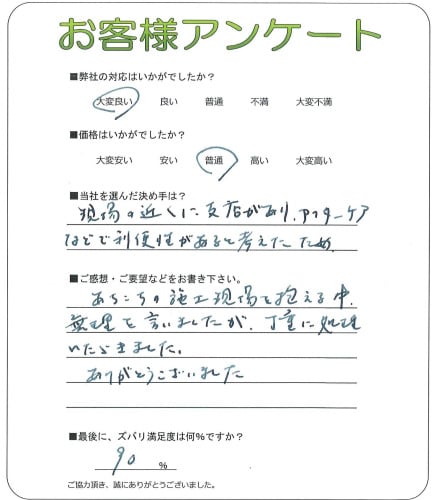 お客様アンケート
■弊社の対応はいかがでしたか？
大変良い 良い 普通 不満 大変不満
■価格はいかがでしたか？
大変安い 安い 普通 高い 大変高い
■当社を選んだ決め手は？
現場の近くに支店があり、アフターケア
などで利便性があると考えたため
■ご感想・ご要望などをお書き下さい。
あちこちの施工現場を抱える中、
無理を言いましたが、丁重に処理
いただきました。
ありがとうございました
■最後に、ズバリ満足度は何％ですか？
90 ％
ご協力頂き、誠にありがとうございました。